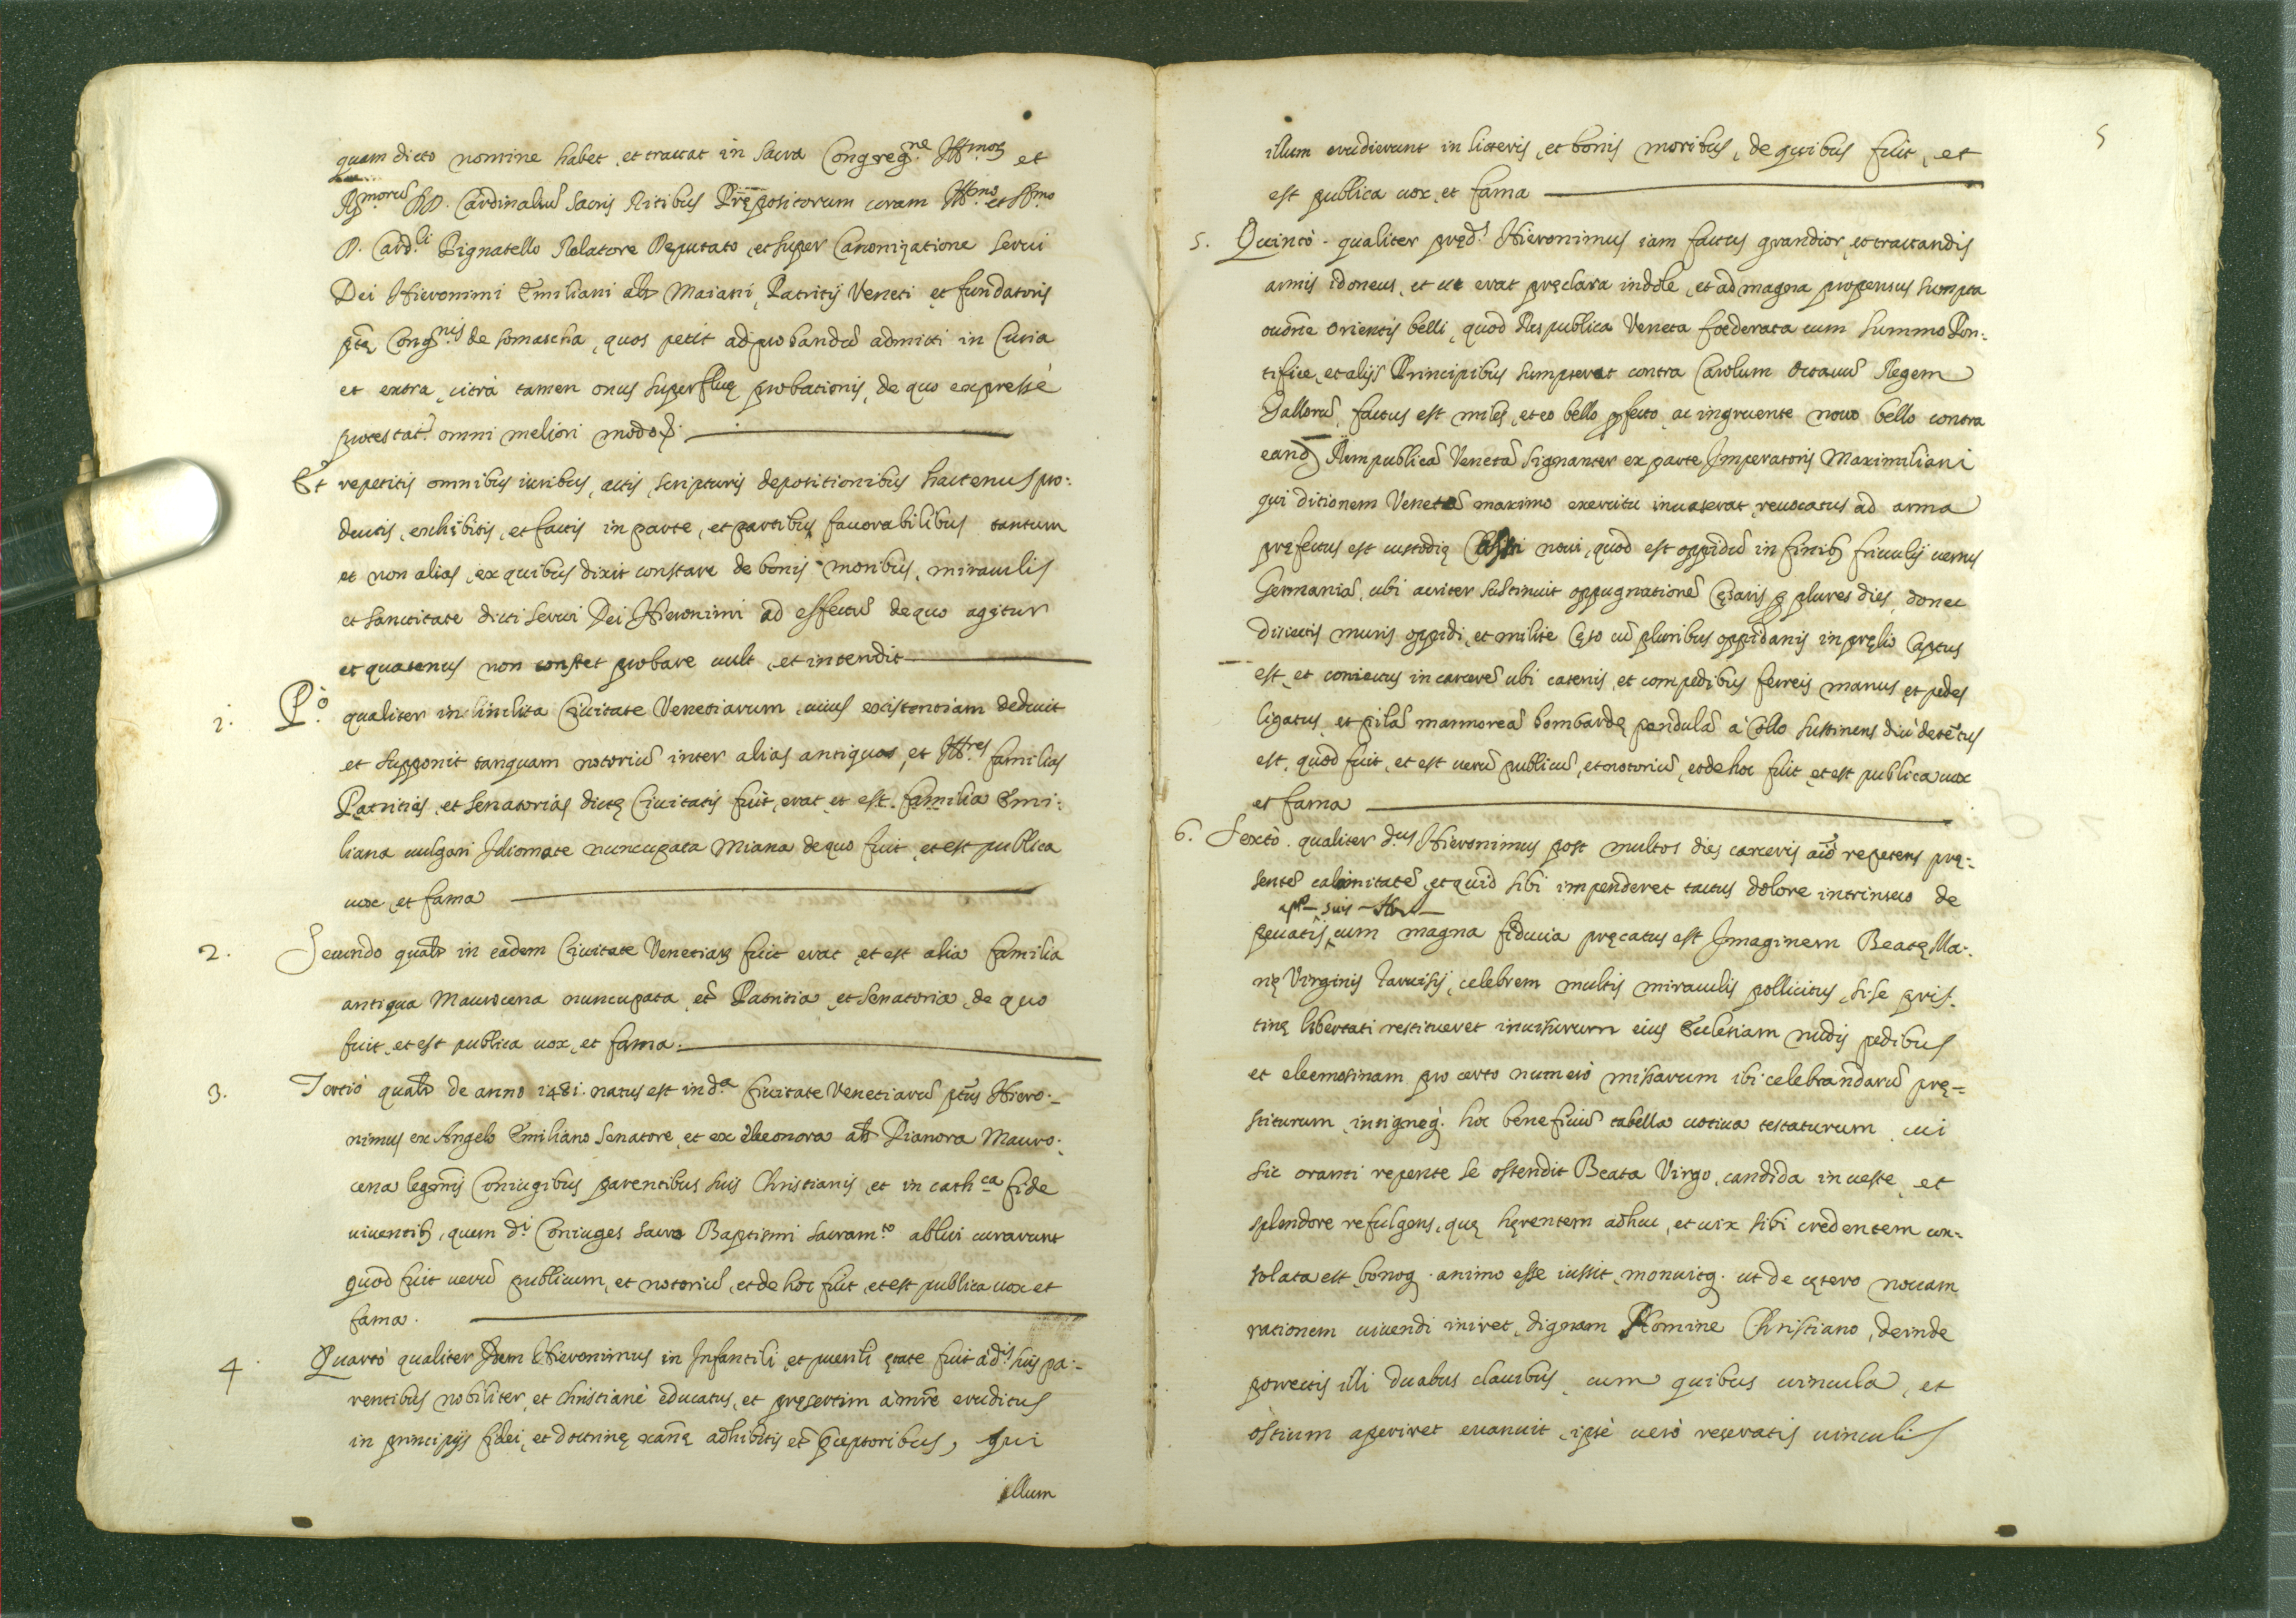 quam dicto nomine habet, et tractat in Sacra Congreg.ne Ill.mor et
R.morũ DD. Cardinaliũ Sacris Ritibus Prępositorum coram Ill.mo et R.mo
D. Card.li Pignatello Relatore Deputato, et super Canonizatione Servi
Dei Hieronimi Emiliani als Maiani, Patritij Veneti et fundatoris
Cong.nis de Somascha, quos petit ad probandũ admitti in Curia
et extra, citrà tamen onus superfluę probationis, de quo expressè
protestat.r omni meliori modo
Et repetitis omnibus iuribus, actis, scripturis depositionibus hactenus pro:
ductis, exhibitis, et factis in parte, et partibus favorabilibus tantum
et non alias, ex quibus dixit constare de bonis moribus, miraculis
et sanctitate dicti Servi Dei Hieronimi ad effectũ de quo agitur
et quatenus non constet probare vult, et intendit
1. P.o qualiter in Inclita Civitate Venetiarum, cuius existentiam deducit
et supponit tanquam notoriũ inter alias antiquas, et Ill.res familias
Patritias, et Senatorias dictę Civitatis fuit, erat, et est familia Emi:
liana vulgari Idiomate nuncupata Miana de quo fuit, et est publica
vox, et fama
2. Secundo qualr in eadem Civitate Venetiarũ fuit erat, et est alia familia
antiqua Maurocena nuncupata, et Patritia, et Senatoria, de quo
fuit, et est publica vox, et fama.
3. Tertiò qualr de anno 1481. natus est in d.a Civitate Venetiarũ Hiero:
nimus ex Angelo Emiliano Senatore, et ex Eleonora als Dianora Mauro:
cena legmis Coniugibus parentibus suis Christianis, et in cath.ca fide
viventib, quem d.i Coniuges sacro Baptismi sacram.to ablui curarunt
quod fuit verũ publicum, et notoriũ, et de hoc fuit, et est publica vox et
fama.
4. Quartò qualiter Idem Hieronimus in Infantili, et puerili ętate fuit à d.is suis pa:
rentibus nobiliter, et christianè educatus, et pręsertim a mre eruditus
in principijs fidei, et doctrinę xanę adhibitis et pceptoribus, qui
illum
5
illum erudierunt in literis, et bonis moribus, de quibus fuit, et
est publica vox, et fama
5. Quintò. qualiter pręd.s Hieronimus iam factus grandior, et tractandis
armis idoneus, et ut erat pręclara indole, et ad magna propensus sumpta
orientis belli, quod Respublica Veneta foederata cum Summo Pon:
tifice, et alijs Principibus sumpserat contra Carolum Octavũ Regem
Gallorũ, factus est miles, et eo bello pfecto, ac ingruente novo bello contra
eand Rempublicã Venetã signanter ex parte Imperatoris Maximiliani
qui ditionem Venetã maximo exercitu invaserat, revocatus ad arma
pręfectus est custodię Castri novi, quod est oppidũ in finib friulij versus
Germaniã, ubi acriter sustinuit oppugnationẽ Cęsaris p plures dies, donec
disiectis muris oppidi, et milite cęso cũ pluribus oppidanis in pręlio captus
est, et coniectus in carcerẽ ubi catenis, et compedibus ferreis manus, et pedes
ligatus, et pilã marmoreã bombardę pendulã à Collo sustinens diù detẽtus
est, quod fuit, et est verũ publicũ, et notoriũ, et de hoc fuit, et est publica vox
et fama
6. Sextò. qualiter d.us Hieronimus post multos dies carceris aĩo repetens prę:
sentẽ calamitatẽ, et quid sibi impenderet tactus dolore intrinseco de
peccatis suis cum magna fiducia pręcatus est Imaginem Beatę Ma:
rię Virginis Tarvisij, celebrem multis miraculis pollicitus, si se pris:
tinę libertati restitueret invisurum eius Ecclesiam nudis pedibus
et eleemosinam pro certo numero missarum ibi celebrandarũ prę:
stiturum, insigneq. hoc beneficiũ tabella votiva testaturum, cui
sic oranti repente se ostendit Beata Virgo, candida in veste, et
splendore refulgens, quę hęrentem adhuc, et vix sibi credentem con:
solata est, bonoq. animo esse iussit, monuitq. ut de cętero novam
rationem vivendi iniret, dignam Homine Christiano, deinde
porrectis illi duabus clavibus, cum quibus vincula, et
ostium aperiret evanuit, ipse verò reseratis vinculis